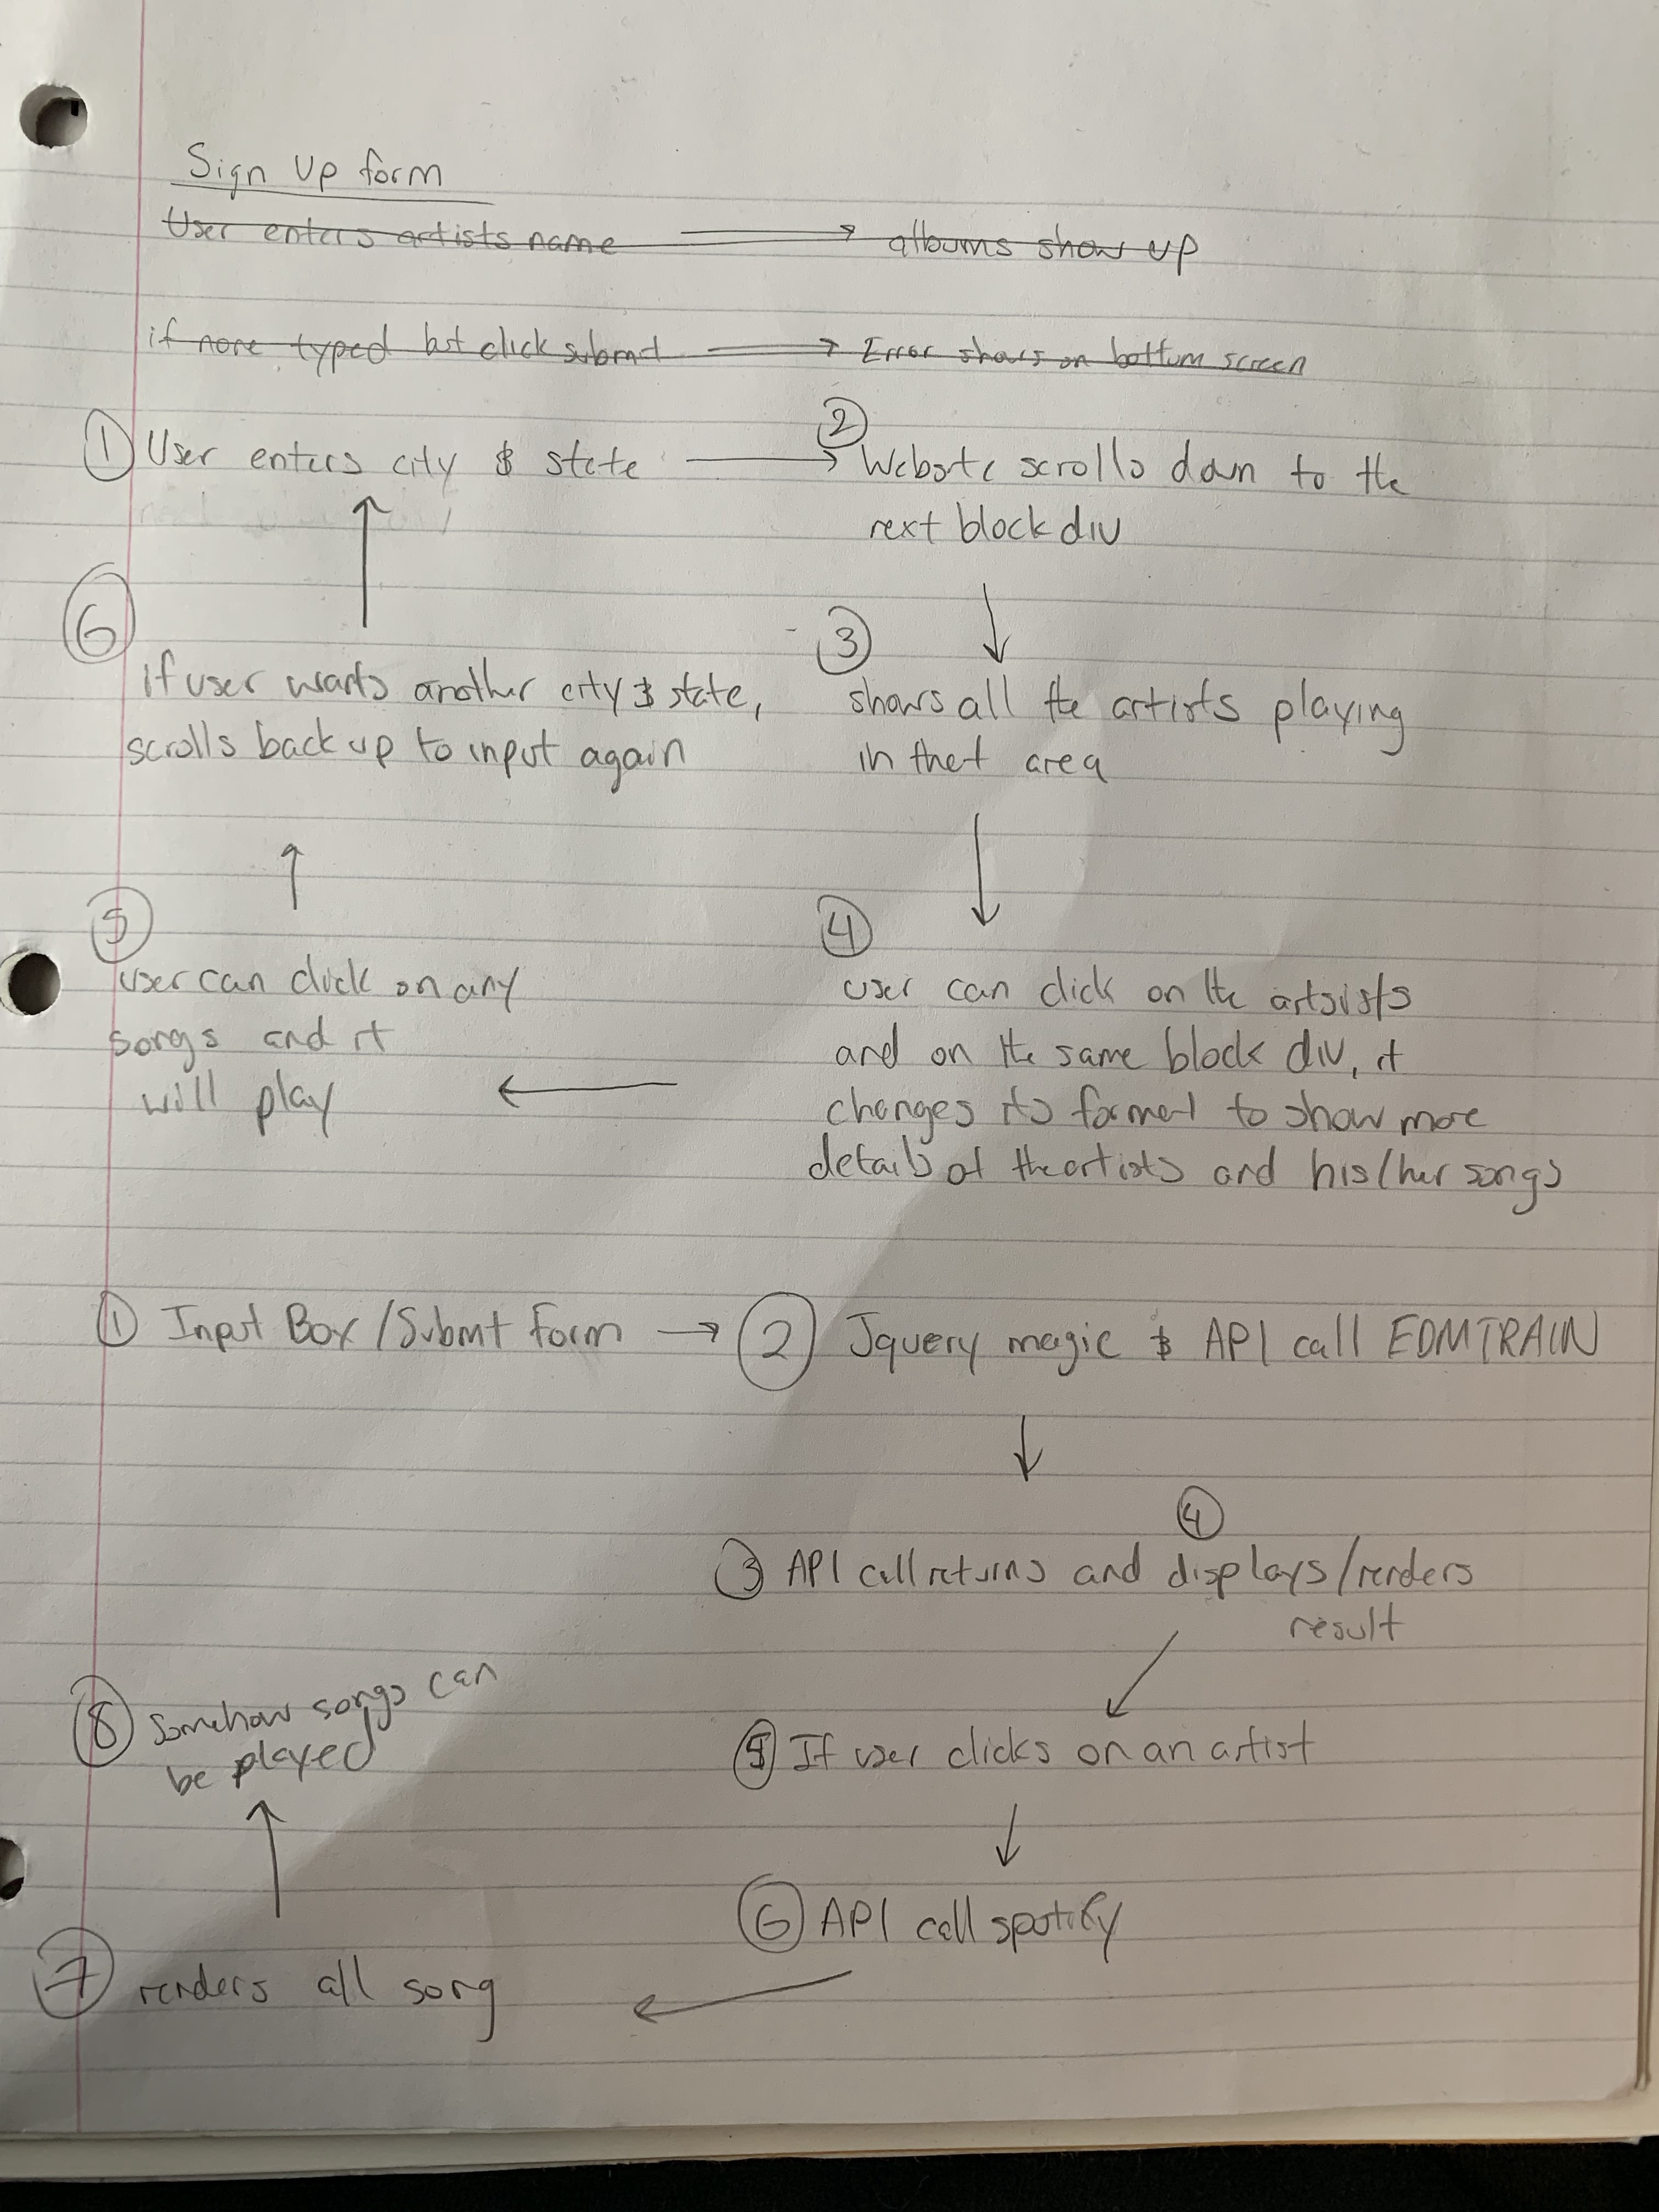 Sign Up form
User enters artists name → albums show up
if none typed but click submit → Error shows on bottom screen
① User enters city & state → ② Website scrolls down to the
next block div
⑥ if user wants another city & state,
scrolls back up to input again
③ shows all the artists playing
in that area
④ user can click on the artsists
and on the same block div, it
changes its format to show more
details of the artists and his/her songs
⑤ user can click on any
songs and it
will play
① Input Box/Submit form → ② Jquery magic & API call EDMTRAIN
④
③ API call returns and displays/renders
result
⑤ If user clicks on an artist
⑥ API call spotify
⑦ renders all song
⑧ Somehow songs can
be played